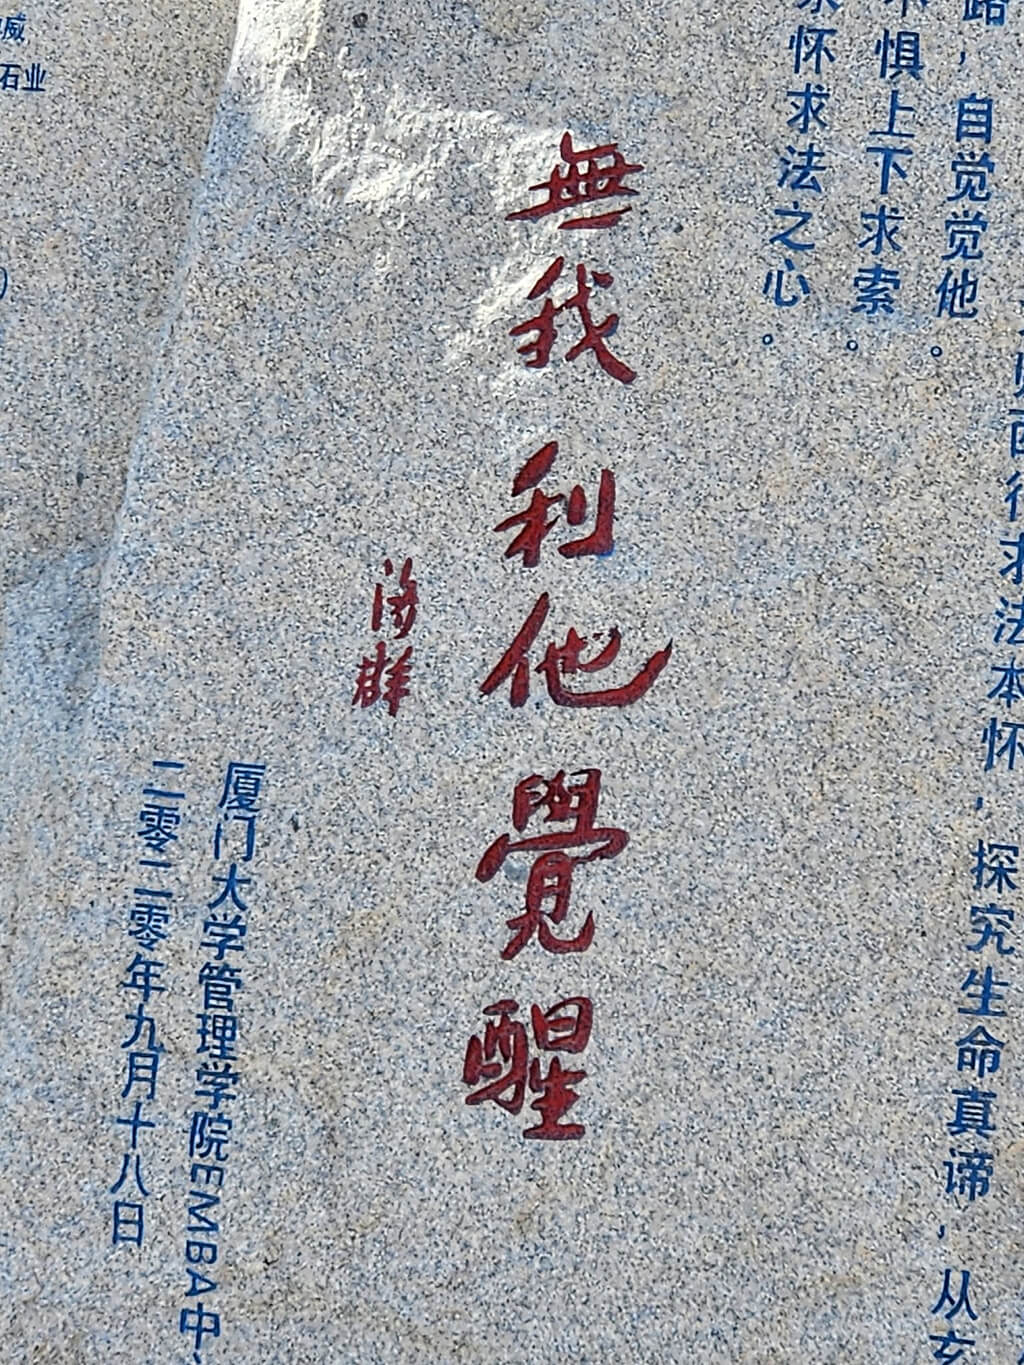 西行求法本怀，探究生命真谛，从玄
路，自觉觉他。
惧上下求索。
怀求法之心。
無我利他覺醒
济群
厦门大学管理学院EMBA中
二零二零年九月十八日
威
石业